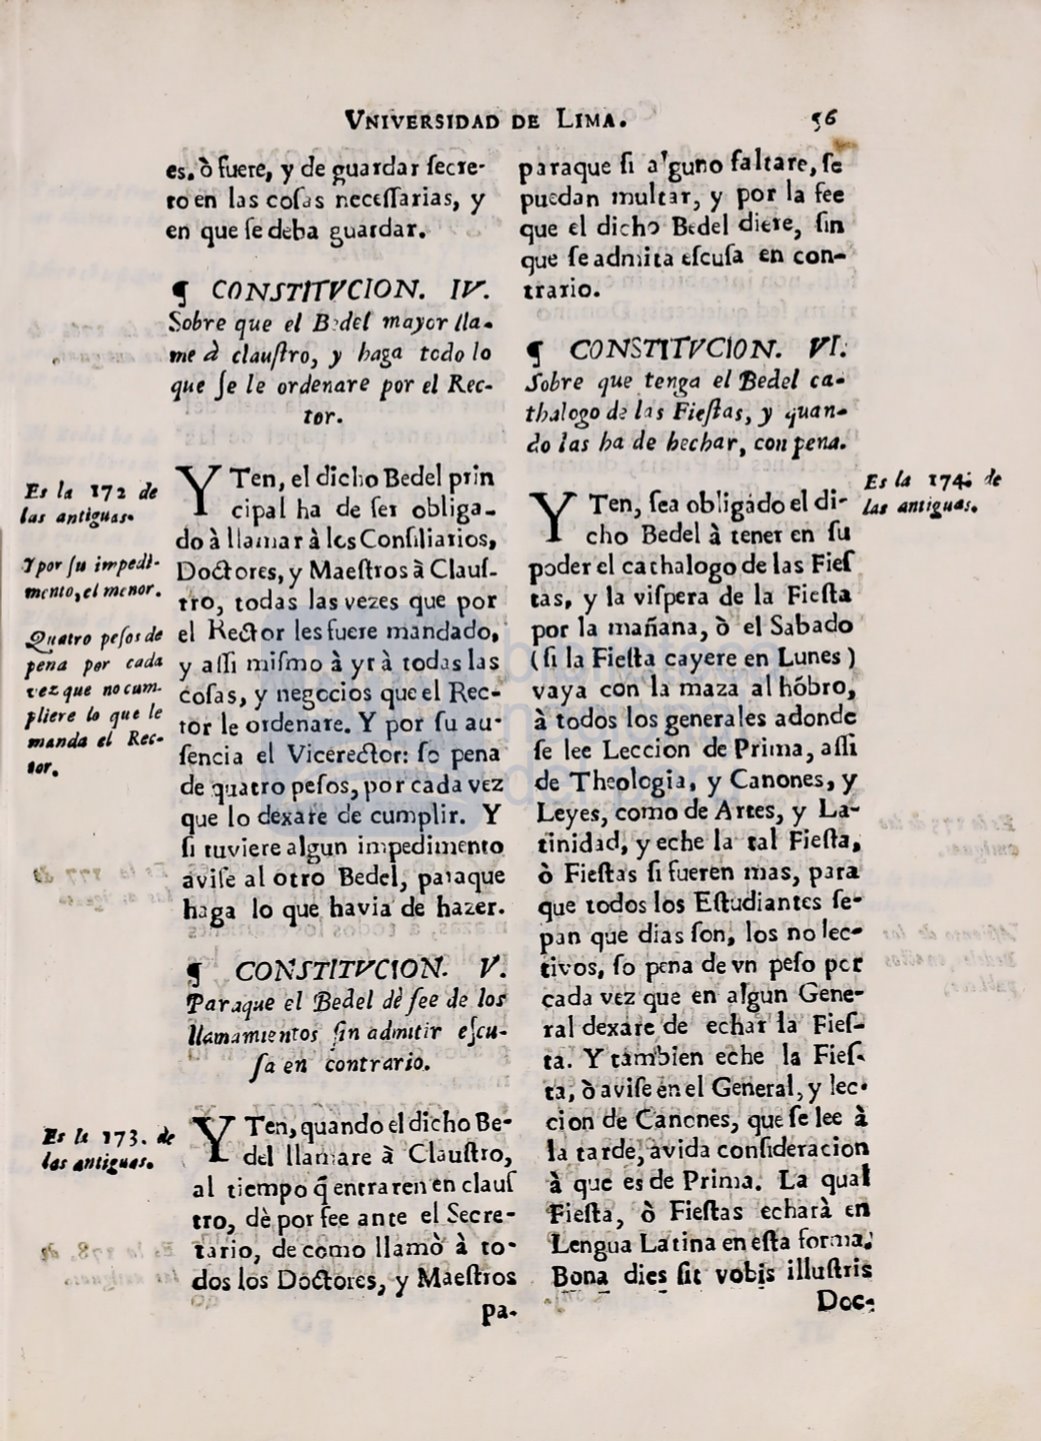 VNIVERSIDAD DE LIMA. 56
es, ò fuere, y de guardar ſecre-
to en las coſas neceſſarias, y
en que ſe deba guardar.
¶ CONSTITVCION. IV.
Sobre que el Bedel mayor lla-
me à clauſtro, y haga todo lo
que ſe le ordenare por el Rec-
tor.
Es la 172 de
las antiguas.
Y por ſu impedi-
mento, el menor.
Quatro peſos de
pena por cada
vez que no cum-
pliere lo que le
manda el Rec-
tor.
YTen, el dicho Bedel prin
cipal ha de ſer obliga-
do à llamar à los Conſiliarios,
Doctores, y Maeſtros à Clauſ-
tro, todas las vezes que por
el Rector les fuere mandado,
y aſſi miſmo à yr à todas las
coſas, y negocios que el Rec-
tor le ordenare. Y por ſu au-
ſencia el Vicerector: ſo pena
de quatro peſos, por cada vez
que lo dexare de cumplir. Y
ſi tuviere algun impedimento
aviſe al otro Bedel, paraque
haga lo que havia de hazer.
¶ CONSTITVCION. V.
Paraque el Bedel dè fee de los
llamamientos ſin admitir eſcu-
ſa en contrario.
Es la 173. de
las antiguas.
YTen, quando el dicho Be-
del llamare à Clauſtro,
al tiempo q̃ entraren en clauſ
tro, dè por fee ante el Secre-
tario, de como llamò à to-
dos los Doctores, y Maeſtros
pa-
paraque ſi alguno faltare, ſe
puedan multar, y por la fee
que el dicho Bedel diere, ſin
que ſe admita eſcuſa en con-
trario.
¶ CONSTITVCION. VI.
Sobre que tenga el Bedel ca-
thalogo de las Fieſtas, y quan-
do las ha de hechar, con pena.
Es la 174. de
las antiguas.
YTen, ſea obligado el di-
cho Bedel à tener en ſu
poder el cathalogo de las Fieſ
tas, y la viſpera de la Fieſta
por la mañana, ò el Sabado
(ſi la Fieſta cayere en Lunes)
vaya con la maza al hõbro,
à todos los generales adonde
ſe lee Leccion de Prima, aſſi
de Theologia, y Canones, y
Leyes, como de Artes, y La-
tinidad, y eche la tal Fieſta,
ò Fieſtas ſi fueren mas, para
que todos los Eſtudiantes ſe-
pan que dias ſon, los no lec-
tivos, ſo pena de vn peſo por
cada vez que en algun Gene-
ral dexare de echar la Fieſ-
ta. Y tambien eche la Fieſ-
ta, ò aviſe en el General, y lec-
cion de Canones, que ſe lee à
la tarde, avida conſideracion
à que es de Prima. La qual
Fieſta, ò Fieſtas echarà en
Lengua Latina en eſta forma:
Bona dies ſit vobis illuſtris
Doc-